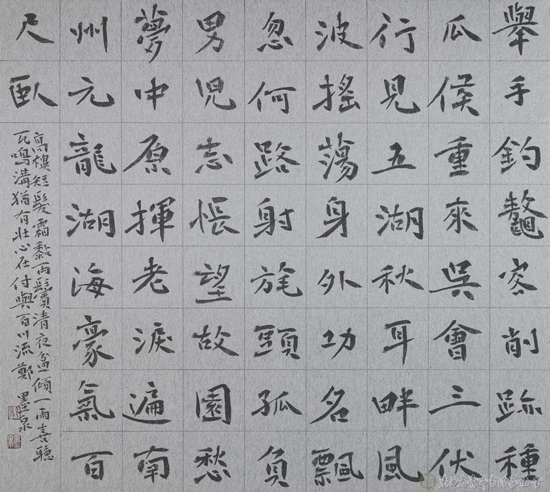 舉手釣鼇客削跡種
瓜侯重來吳會三伏
行見五湖秋耳畔風
波搖蕩身外功名飄
忽何路射旄頭孤負
男兒志悵望故園愁
夢中原揮老淚遍南
州元龍湖海豪氣百
尺臥
高樓短髮霜黏兩鬢清夜盆傾一雨喜聽
瓦鳴溝猶有壯心在付與百川流鄭墨泉